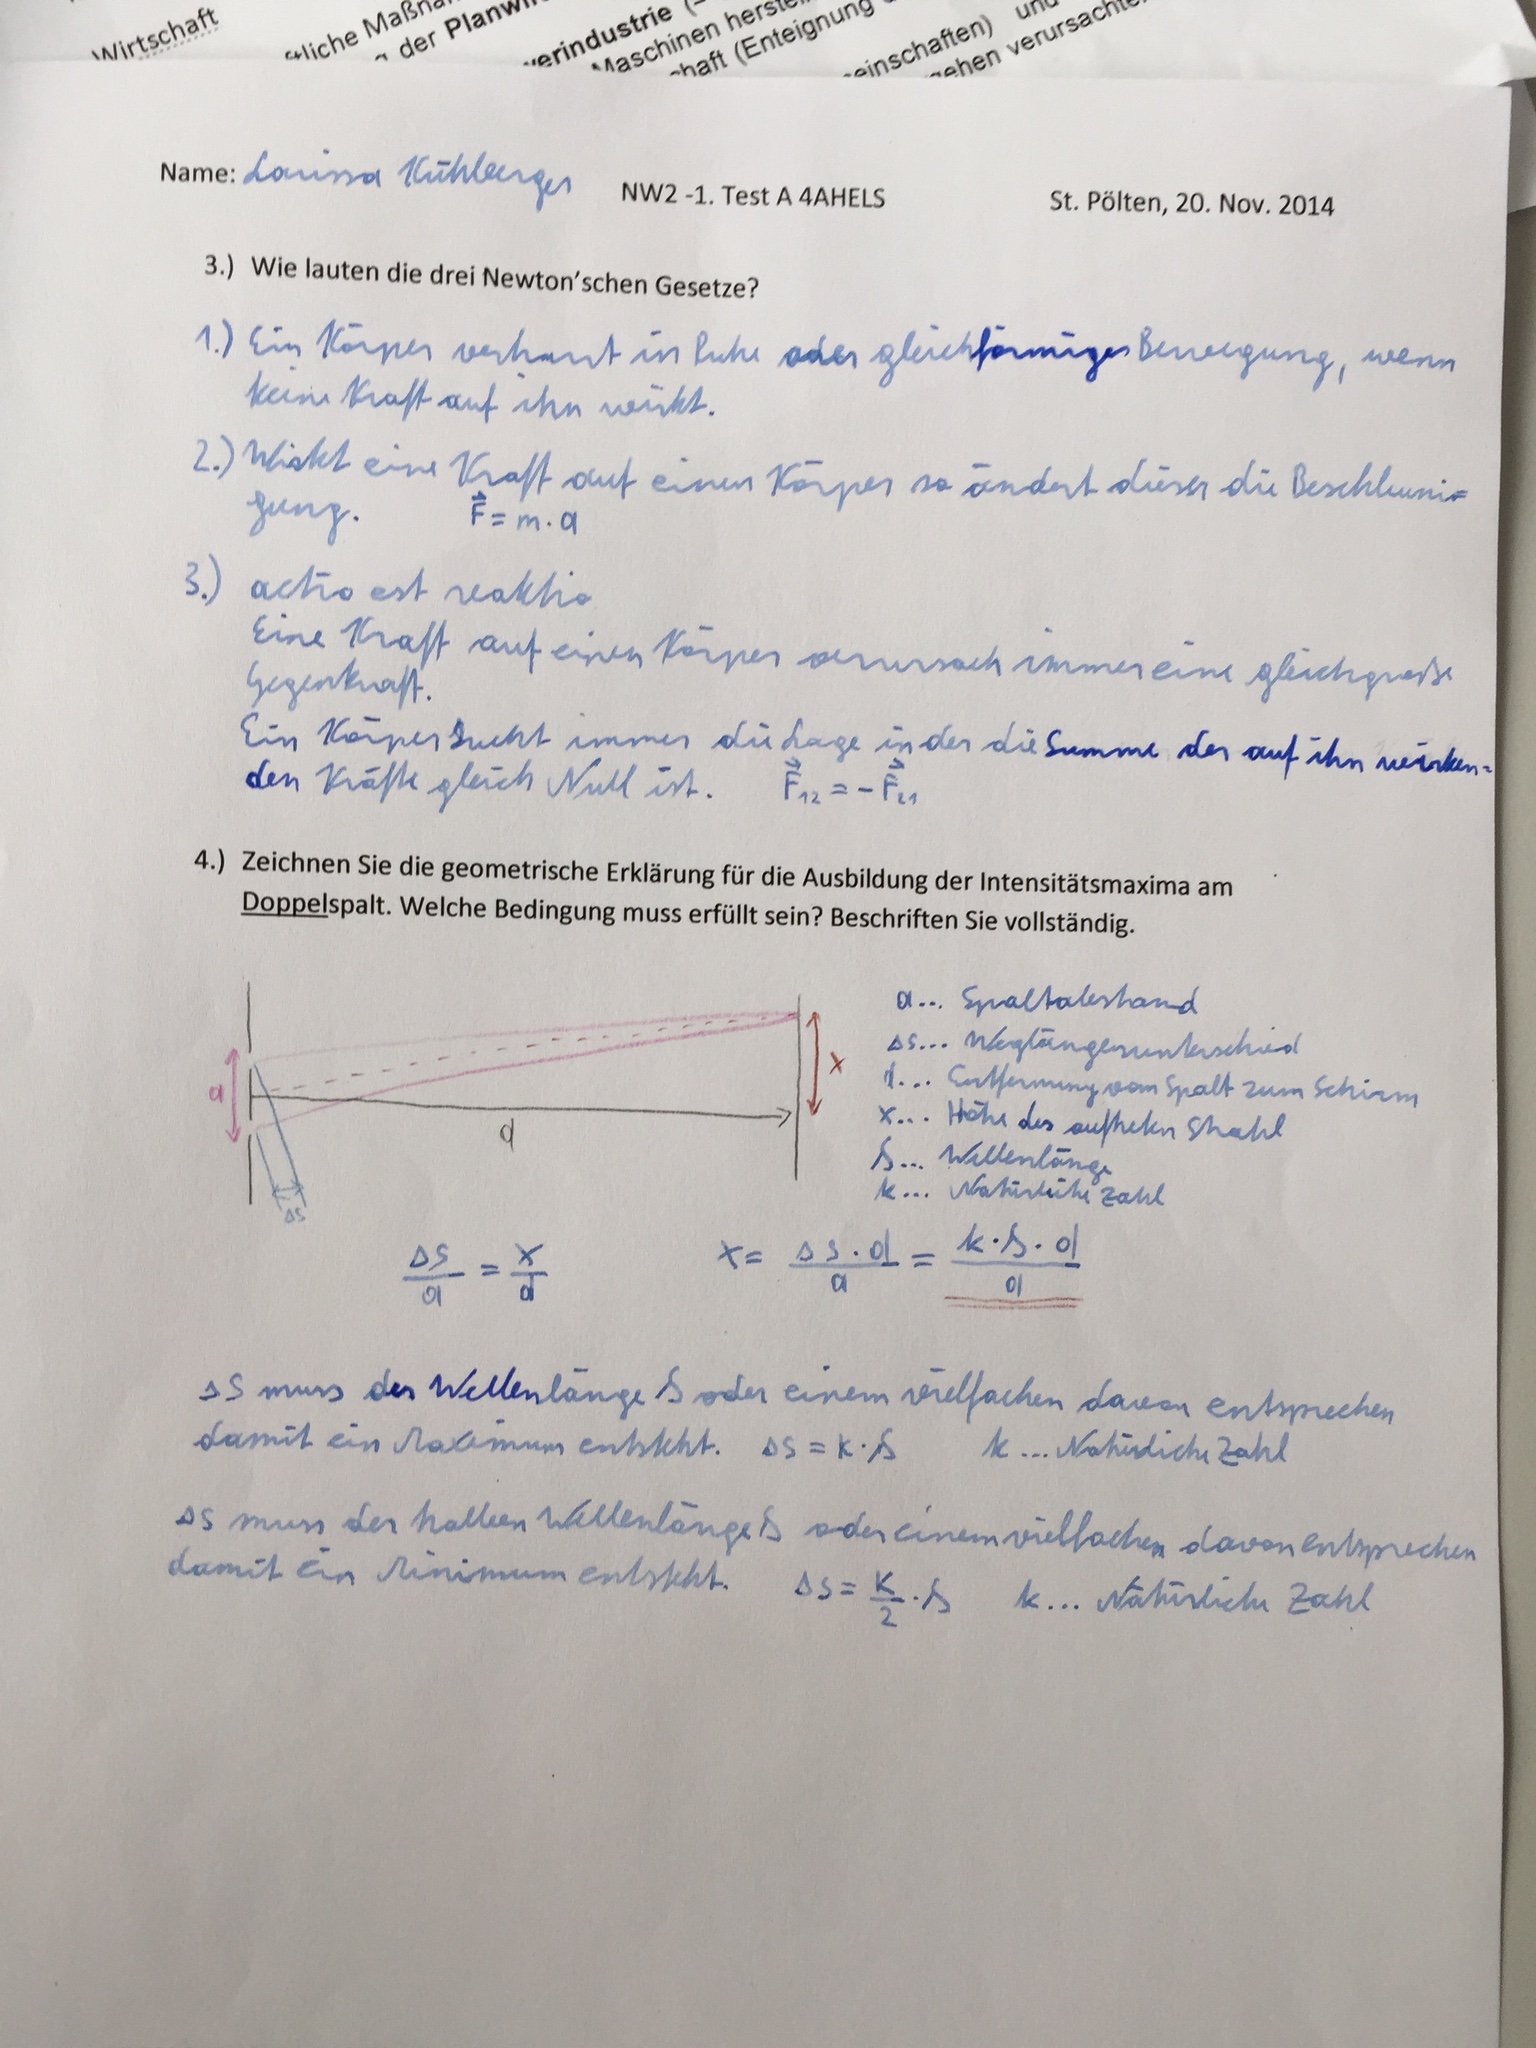 Wirtschaft
tliche Maßna
der Planwi
erindustrie (
Maschinen herstel
haft (Enteignung
einschaften) und
gehen verursachte
Name: Larissa Kühberger
NW2 -1. Test A 4AHELS
St. Pölten, 20. Nov. 2014
3.) Wie lauten die drei Newton'schen Gesetze?
1.) Ein Körper verharrt in Ruhe oder gleichförmiger Bewegung, wenn
keine Kraft auf ihn wirkt.
2.) Wirkt eine Kraft auf einen Körper so ändert dieser die Beschleuni=
gung. F⃗ = m · a
3.) actio est reaktio
Eine Kraft auf einen Körper verursach immer eine gleichgroße
Gegenkraft.
Ein Körper sucht immer die Lage in der die Summe der auf ihn wirken=
den Kräfte gleich Null ist. F⃗₁₂ = - F⃗₂₁
4.) Zeichnen Sie die geometrische Erklärung für die Ausbildung der Intensitätsmaxima am
Doppelspalt. Welche Bedingung muss erfüllt sein? Beschriften Sie vollständig.
a
d
x
Δs
a... Spaltabstand
Δs... Weglängenunterschied
d... Entfernung vom Spalt zum Schirm
x... Höhe des Strahl
λ... Wellenlänge
k... Natürliche Zahl
Δs/a = x/d
x = Δs·d/a = k·λ·d/a
Δs muss der Wellenlänge λ oder einem vielfachen davon entsprechen
damit ein Maximum entsteht. Δs = k·λ k... Natürliche Zahl
Δs muss der halben Wellenlänge λ oder einem vielfachen davon entsprechen
damit ein Minimum entsteht. Δs = k/2 · λ k... Natürliche Zahl